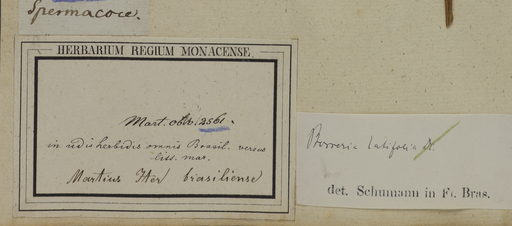 Spermacoce.
HERBARIUM REGIUM MONACENSE.
Mart. obs. 2561.
in udis herbidis omnis Brasil. versus
litt. mar.
Martius Iter brasiliense
Borreria latifolia
det. Schumann in Fl. Bras.